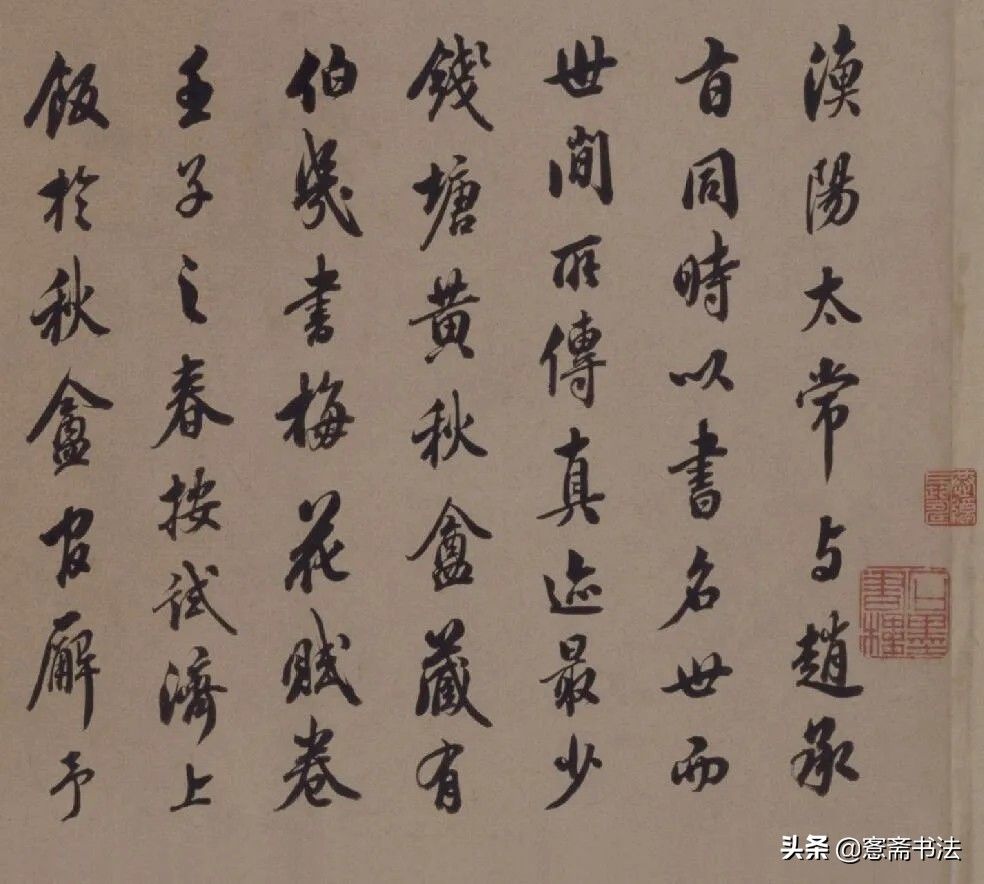 漁陽太常与趙承
旨同時以書名世而
世間所傳真迹最少
錢塘黄秋盦藏有
伯幾書梅花賦卷
壬子之春按試濟上
飯於秋盦官廨予
石墨書樓
头条 @愙斋书法